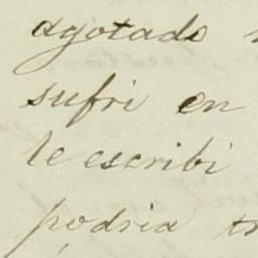 agotado
sufri en
le escribi
podria